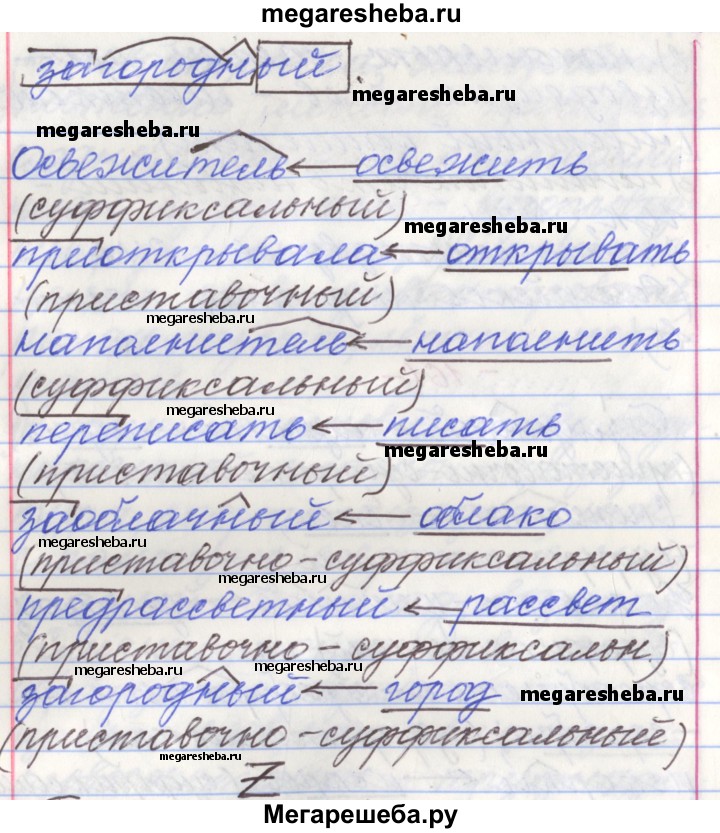 megaresheba.ru
загородный
megaresheba.ru
megaresheba.ru
Освежитель ← освежить
(суффиксальный)
megaresheba.ru
приоткрывала ← открывать
(приставочный)
megaresheba.ru
наполнитель ← наполнить
(суффиксальный)
megaresheba.ru
переписать ← писать
megaresheba.ru
(приставочный)
заоблачный ← облако
megaresheba.ru
(приставочно-суффиксальный)
megaresheba.ru
предрассветный ← рассвет
(приставочно-суффиксальн.)
megaresheba.ru
megaresheba.ru
загородный ← город
megaresheba.ru
(приставочно-суффиксальный)
megaresheba.ru
Z
Мегарешеба.ру